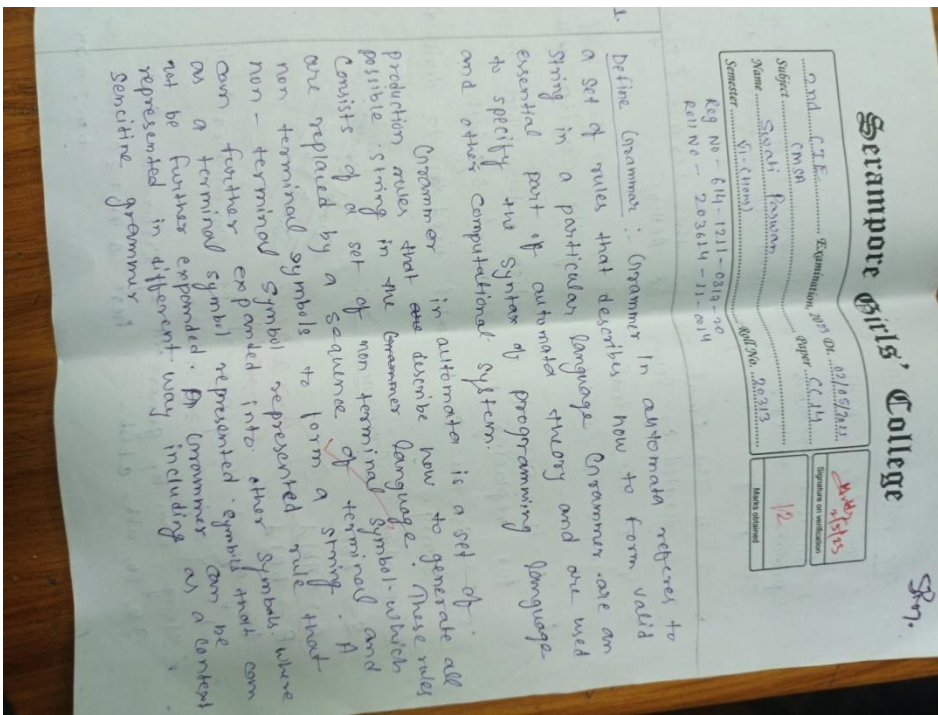 Serampore Girls' College
Skn.
2nd C.I.E. Examination, 2023 Dt. 02/05/2023
Subject CMSA Paper CC 14
Name Swati Paswan Roll No. 20313
Semester VI - (Hons)
Signature on verification
2/5/23
12
Marks obtained
Reg No - 614-1211-0317-20
Roll No - 203614-11-0014
1.
Define Grammar :- Grammer in automata referes to
a set of rules that describes how to form valid
string in a particular language Grammer are an
essential part of automata theory and are used
to specify the syntax of programming language
and other computational system.
Grammer in automata is a set of
production rules that describe how to generate all
possible string in the Grammer language. These rules
consists of a set of non terminal symbol which
are replaced by a sequence of terminal and
non terminal symbols to form a string. A
non-terminal symbol represented rule that
can further expanded into other symbols. where
as a terminal symbol represented symbols that can
not be further expanded. A Grammer can be
represented in different way including as a context
sencitine grammer